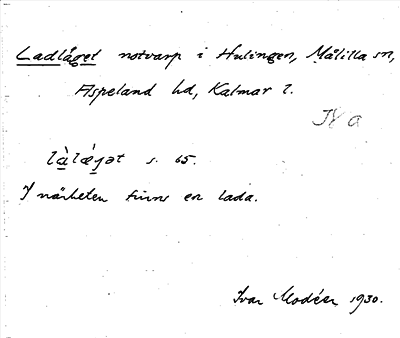 Ladläget notvarp i Hulingen, Målilla sn,
Aspeland hd, Kalmar l.
IV a
s. 65.
I närheten finns en lada.
Ivar Modéer 1930.